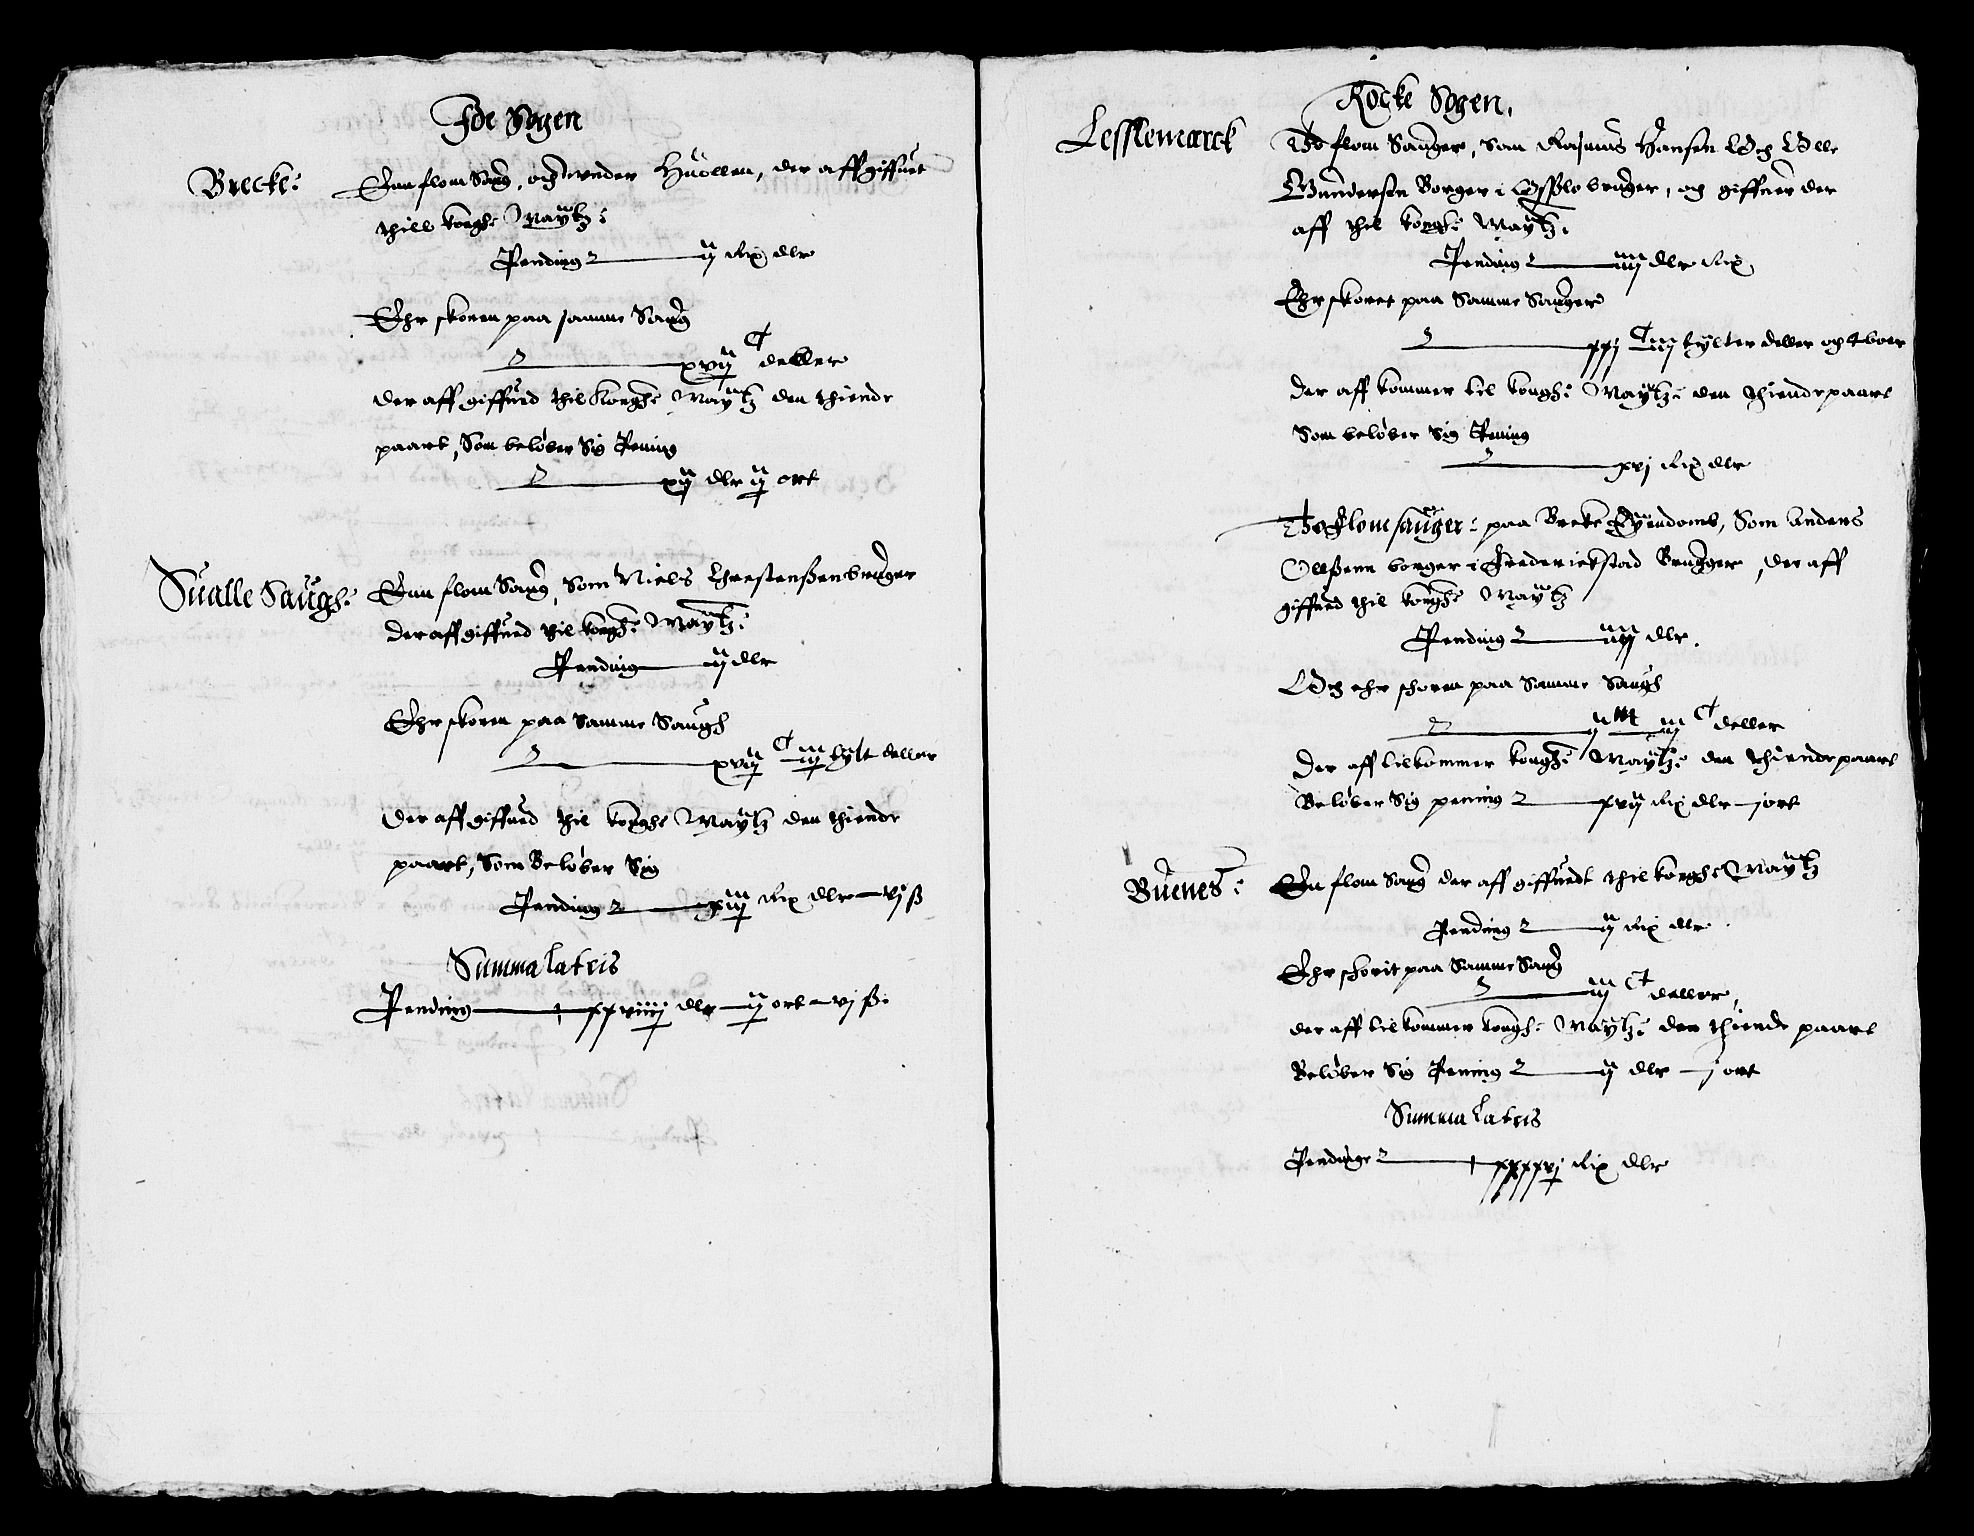 Ide Sogen
Brecke: Enn flom Saug, och under Huollen, der aff giffuet
thill kongh: Maytz:
Pending ij Rix dlr
Ehr skoren paa samme Saug
xvij C deller
der aff giffued thil Kongh: Maytz den thiende
paart, Som beløber Sig Pening
xij dlr ij ort
Sualle Saugh: Enn flom Saug, Som Niels Chrestenßen bruger
der aff giffued thil kongh: Maytz:
Pending ij dlr
Ehr skoren paa Samme Saugh
xvij C iiij tylt deller
Der aff giffued thil kongh: Maytz den thiende
paart, Som Beløber Sig
Pending xiij Rix dlr vj ß
Summa lateris
Pending xxviiij dlr ij ort vj ß:
Rocke Sogen.
Lesslemarck To flom Sauger, Som Rasmus Hansen Och Olle
Gundersen Borger i Opslo bruger, och giffuer der
aff thil kongh: Maytz:
Pending iiij dlr Rix
Ehr skoret paa Samme Sauger
xxj C iiij tylter deller og t boer
Der aff kommer til kongh: Maytz: den thiende paart
Som beløber Sig Pening
xvj Rix dlr
To flom sauger: paa Breke Eyendomb, Som Anders
Olleßenn borger i Frederickstad Brugger, der aff
giffued thil kongh: Maytz
Pending iiij dlr.
Och ehr skoren paa Samme Saugh
ij M iij C deller
Der aff tilkommer kongh: Maytz: den thiende paart
Beløber Sig pening xvij Rix dlr j ort
Buenes: En flom Saug der aff giffuedt thil kongh: Maytz
Pending ij Rix dlr
Ehr skorit paa Samme Saug
iij C deller,
der aff tilkommer kongh: Maytz: den thiende paart
Beløber Sig Pening ij dlr j ort
Summa Lateris
Pendinge xxxxvj Rix dlr